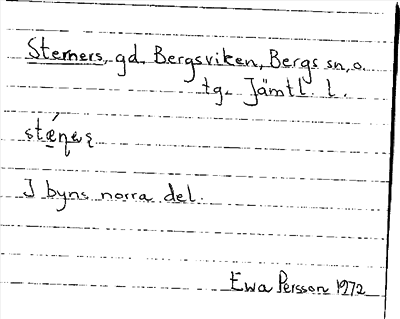 Sterners, gd. Bergsviken, Bergs sn, o.
tg. Jämtl. l.
I byns norra del.
Ewa Persson 1972